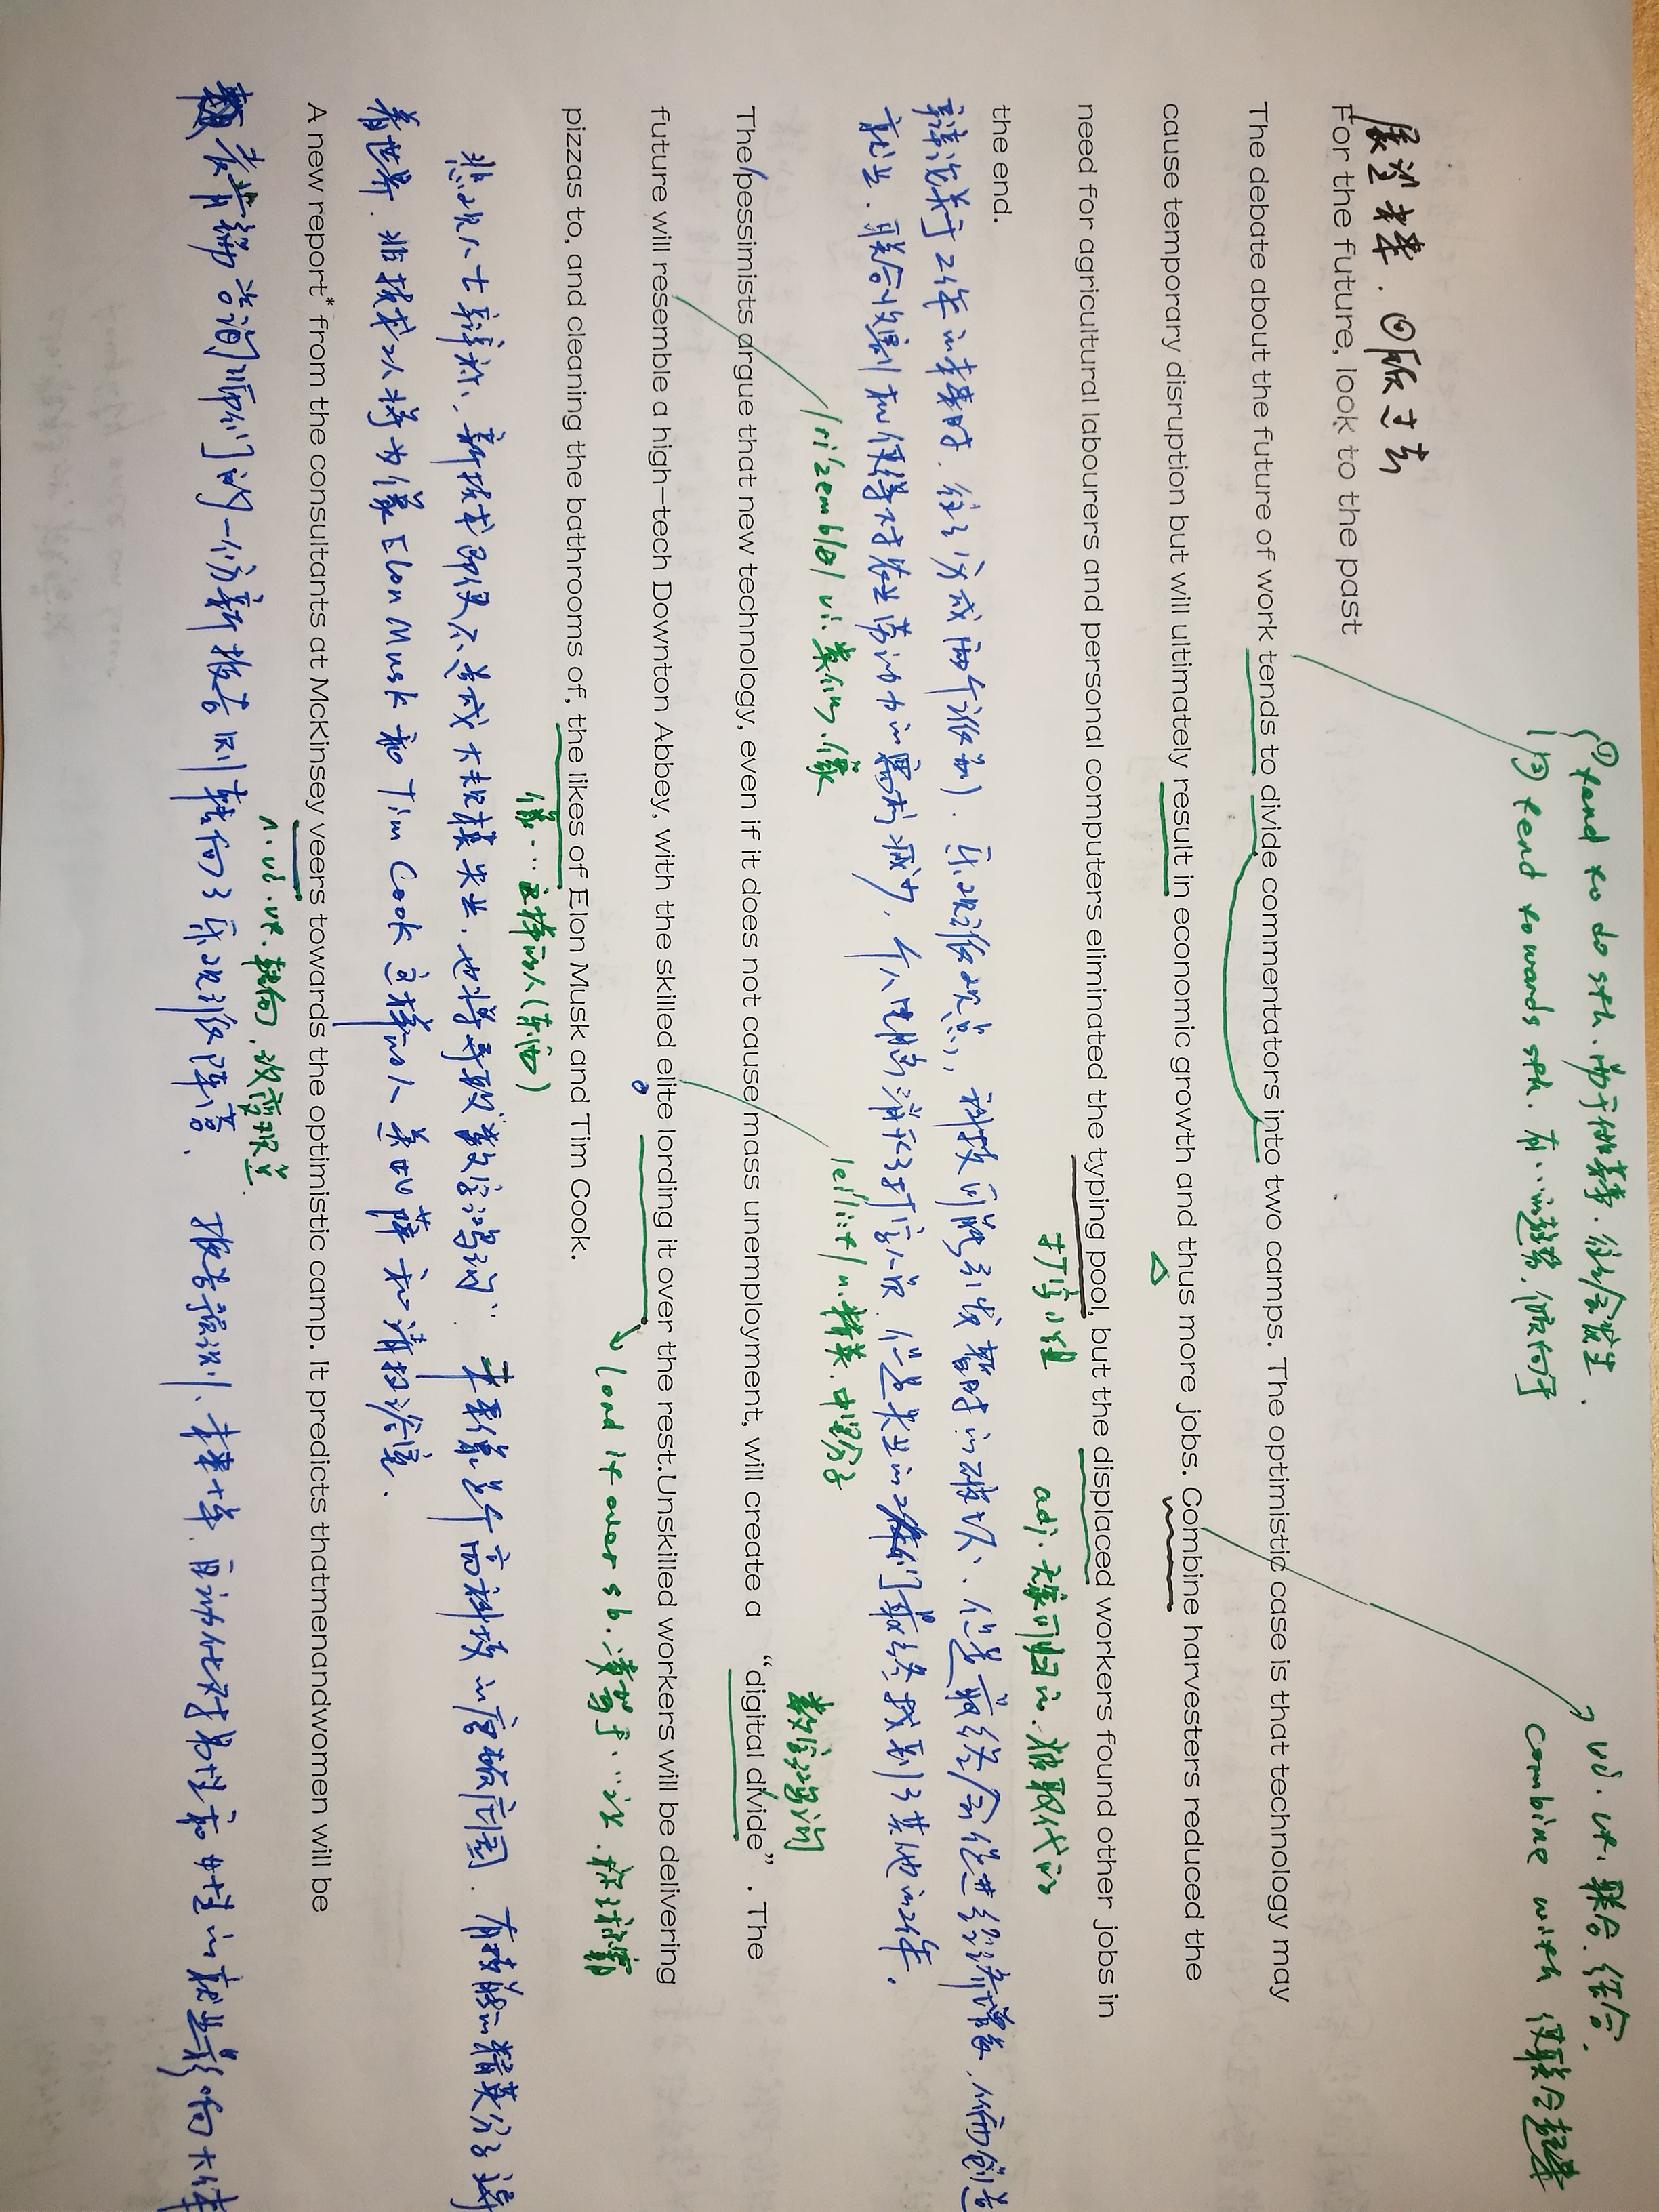 ①tend to do sth. 倾于做某事. 往往会发生.
②tend towards sth. 有…的趋势. 倾向于
vi. vt. 联合. 结合.
combine with 使联合起来
展望未来. 回顾过去
For the future, look to the past
The debate about the future of work tends to divide commentators into two camps. The optimistic case is that technology may
cause temporary disruption but will ultimately result in economic growth and thus more jobs. Combine harvesters reduced the
need for agricultural labourers and personal computers eliminated the typing pool, but the displaced workers found other jobs in
打字小组
adj. 无家可归的. 被取代的
the end.
辩论关于工作的未来时. 往往分成两个派别). 乐观派观点, 科技可能引发暂时的破坏、但是最终会促进经济增长, 从而创造
就业. 联合收割机使得对农业劳动力的需求减少, 个人电脑消除了打字人员, 但是失业的工作们最终找到了其他的工作.
/ri'zembl/ vi. 类似. 像
/ei'li:t/ n. 精英. 中坚分子
数字鸿沟
The pessimists argue that new technology, even if it does not cause mass unemployment, will create a “digital divide”. The
future will resemble a high-tech Downton Abbey, with the skilled elite lording it over the rest.Unskilled workers will be delivering
lord it over sb. 凌驾于…之上.
pizzas to, and cleaning the bathrooms of, the likes of Elon Musk and Tim Cook.
像…这样的人(东西)
悲观人士辩称、新技术即使不造成大规模失业, 也将导致“数字鸿沟” 未来像是个高科技的唐顿庄园. 有技能的精英分子
着世界. 非技术人将为像Elon Musk和Tim Cook这样的人送披萨和清扫浴室.
A new report* from the consultants at McKinsey veers towards the optimistic camp. It predicts thatmenandwomen will be
n. vi. vt. 转向, 改变
麦肯锡咨询师们的一份新报告则转向了乐观派阵营. 报告预测、未来十年, 自动化对男性和女性的就业影响大体